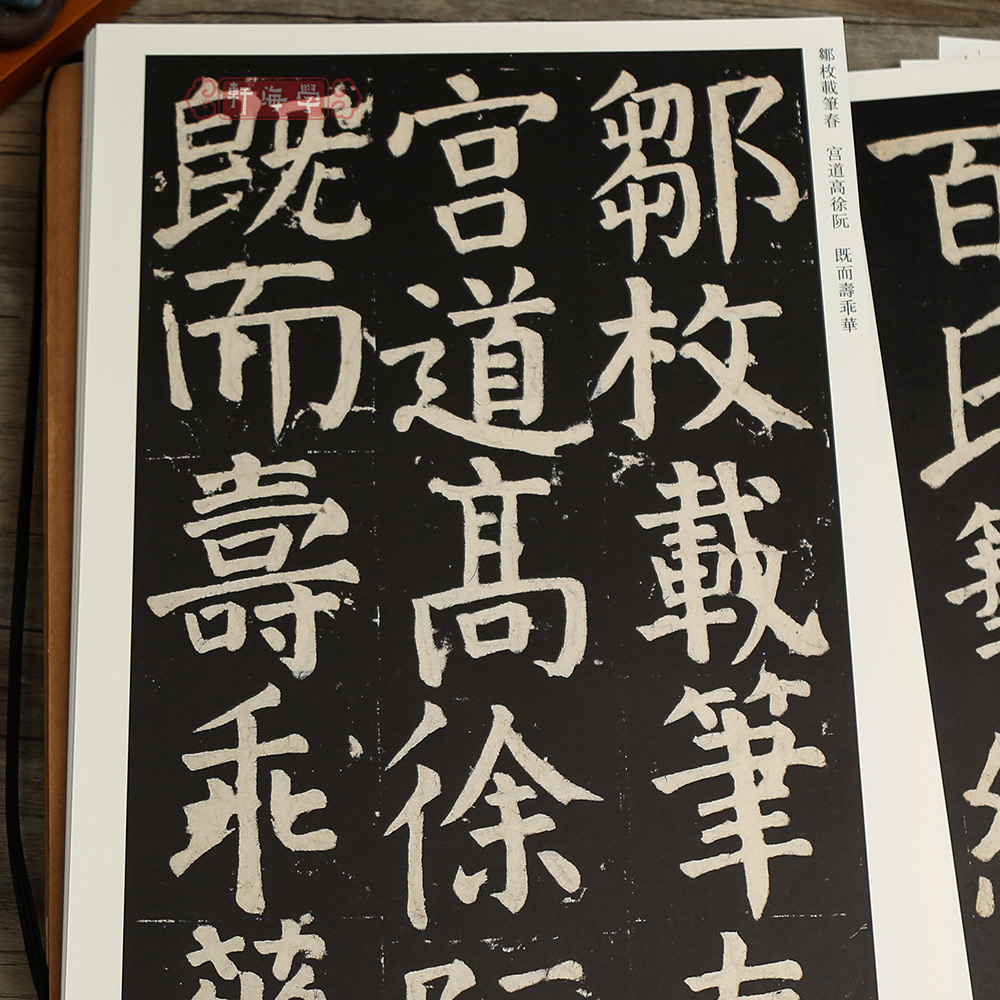 鄒枚載筆春　宫道高徐阮　既而壽乖華
鄒枚載筆春
宫道高徐阮
既而壽乖華
軒海學
百